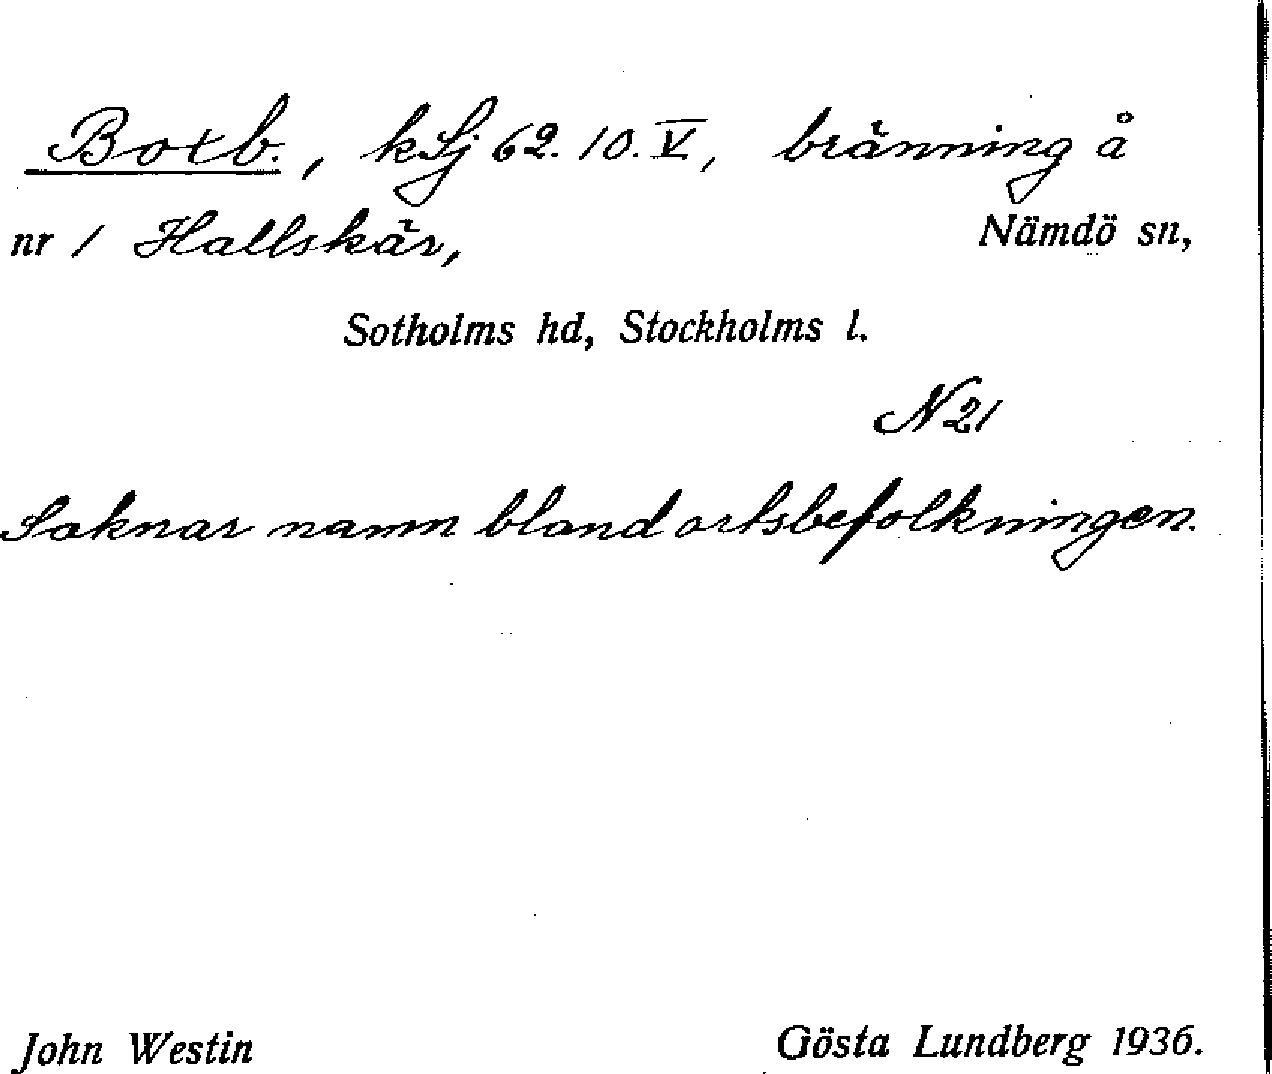 Botb., kSj 62.10.V, bränning å
nr 1 Hallskär, Nämdö sn,
Sotholms hd, Stockholms l.
N 21
Saknar namn bland ortsbefolkningen.
John Westin Gösta Lundberg 1936.